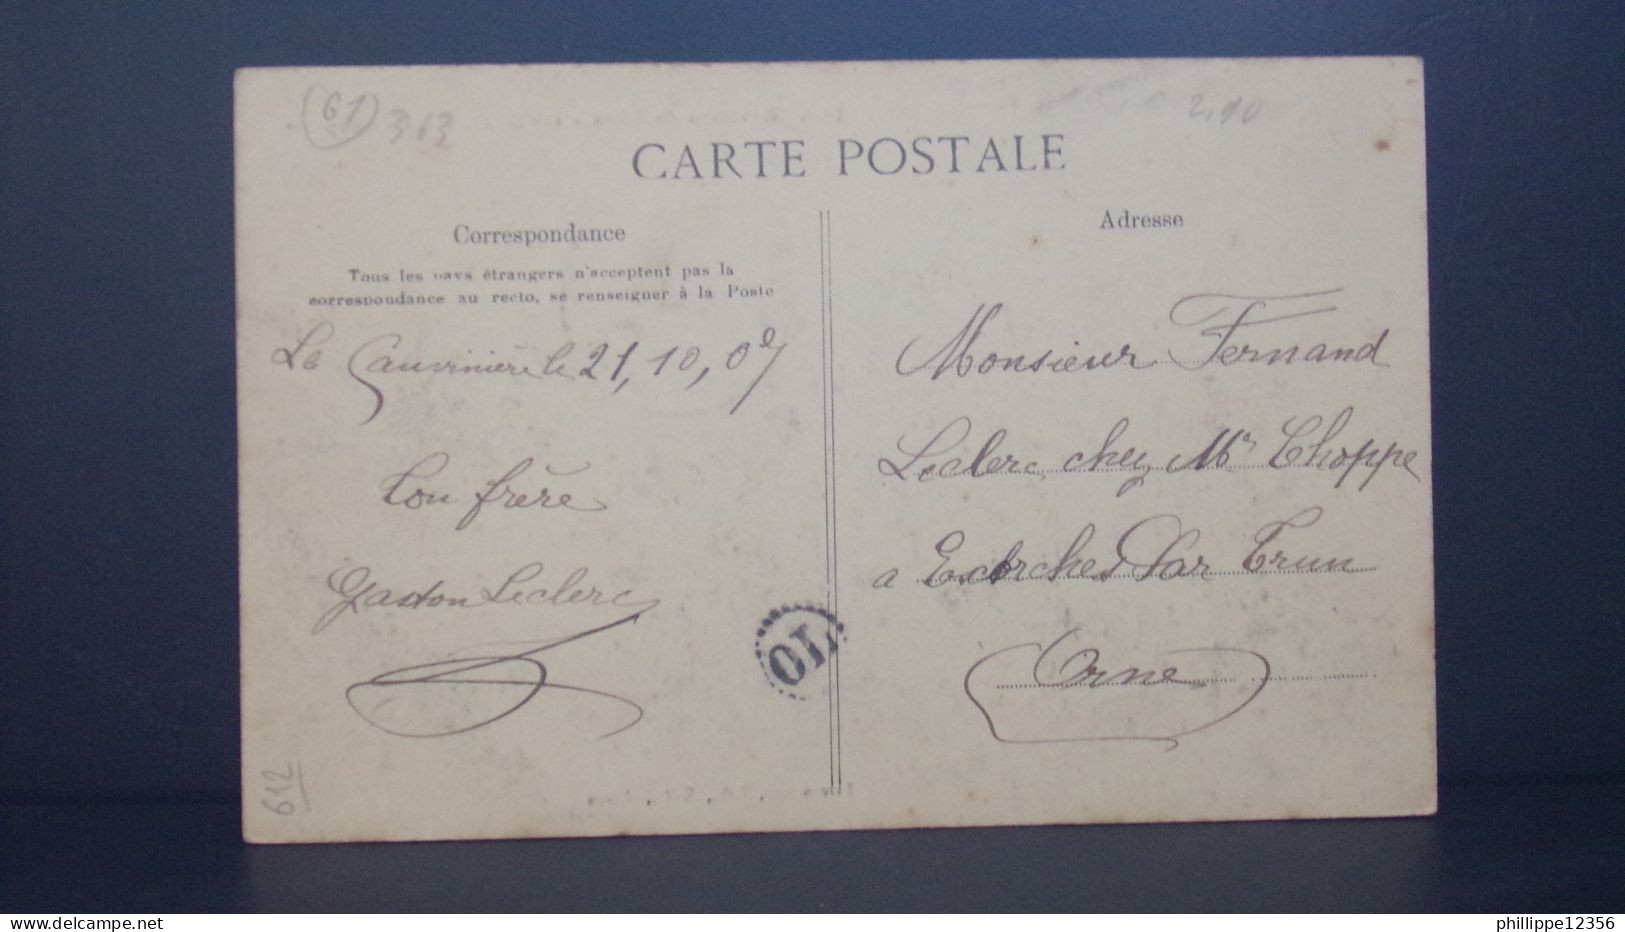 (61) 363
2,10
CARTE POSTALE
Correspondance
Adresse
Tous les pays étrangers n'acceptent pas la
correspondance au recto, se renseigner à la Poste
La Sauvinière le 21, 10, 07
Ton frère
Gaston Leclerc
Monsieur Fernand
Leclerc chez Mr Choppe
a Ecorches Par Trun
Orne
OL
612
delcampe.net
phillippe12356